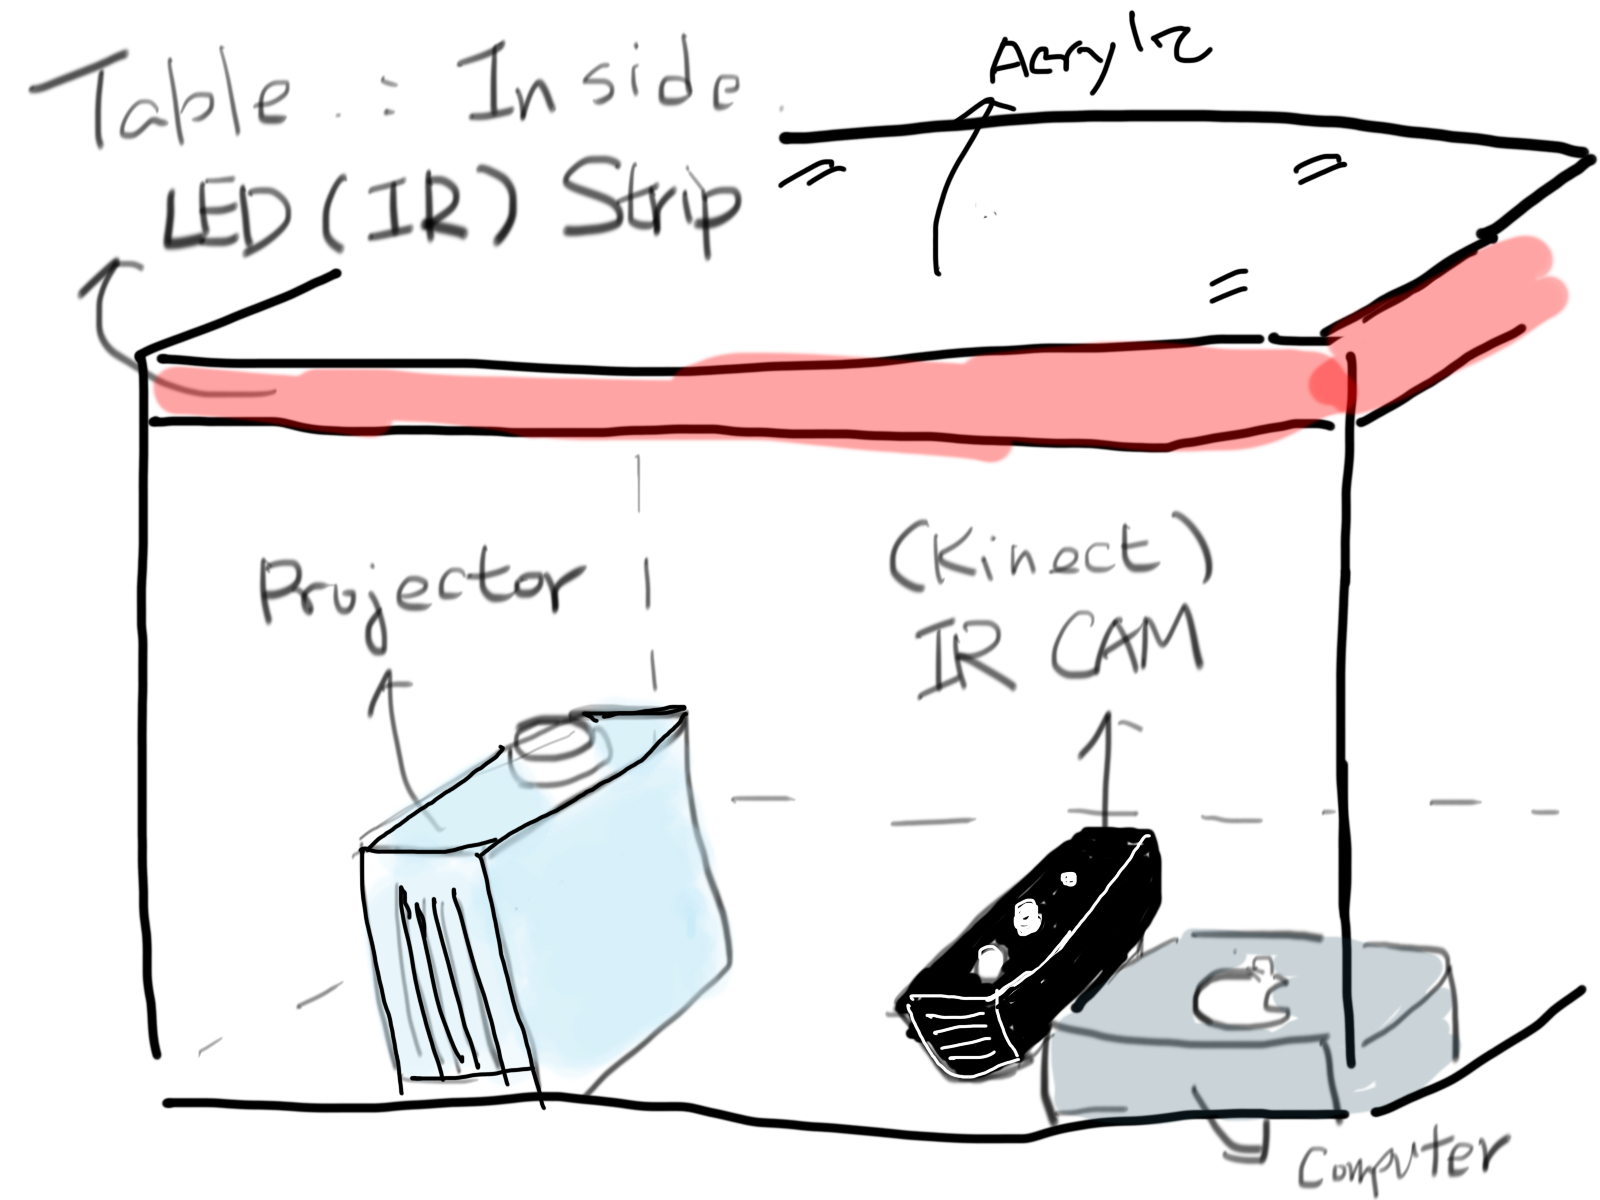 Table : Inside
Acrylic
LED (IR) Strip
Projector
(Kinect)
IR CAM
Computer